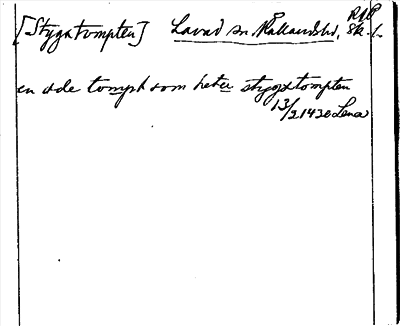 [Stygxtompten] Lavad sn Kållandshd, Sk. l.
en øde tompt som heter styggxtompten
13/2 1420 Lena